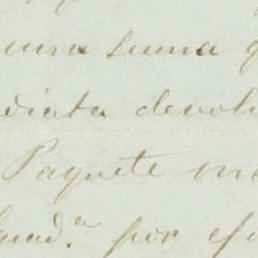 una suma q
diata devol
Paquete me
uad.ª por e